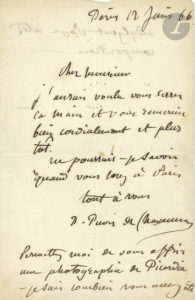 Paris 12 Juin 66
Cher monsieur
j'aurais voulu vous serrer
la main et vous remercier
bien cordialement et plus
tôt.
ne pourrais-je savoir
quand vous serez à Paris
tout à vous
P. Puvis de Chavannes
Permettez moi de vous offrir
une photographie de Picardia
- je sais combien vous